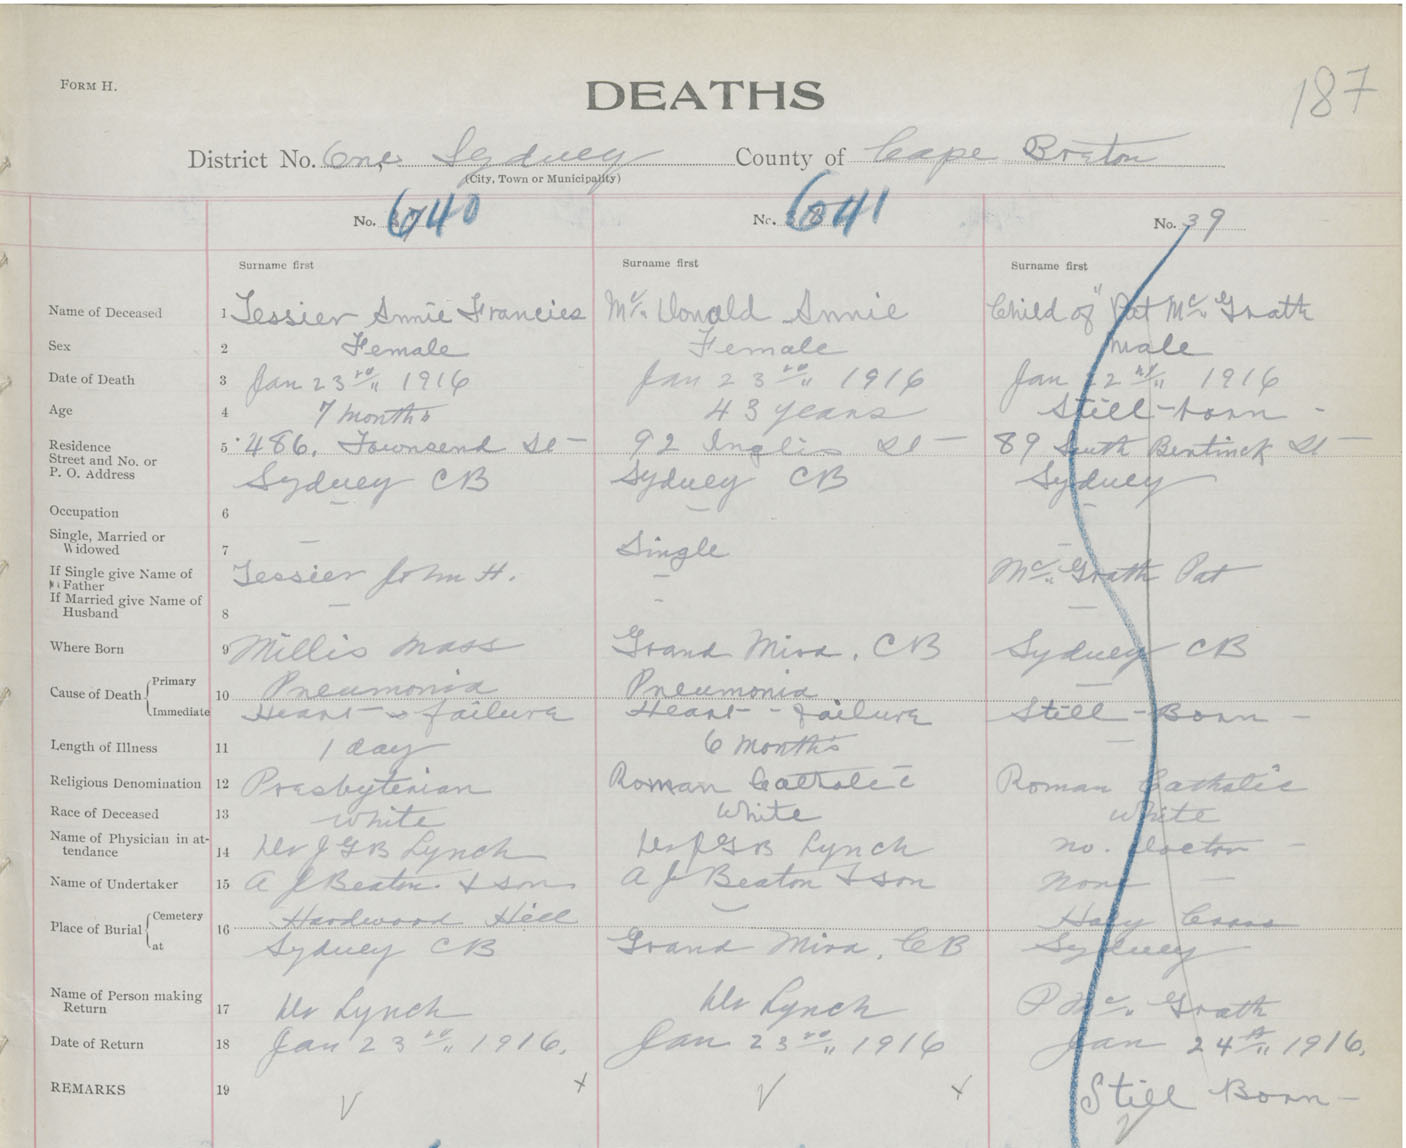 FORM H.
DEATHS
187
District No. One, Sydney County of Cape Breton
(City, Town or Municipality)
No. 640 No. 641 No. 39
Surname first Surname first Surname first
Name of Deceased 1 Tessier Annie Francies Mc. Donald Annie Child of Pat Mc. Grath
Sex 2 Female Female Male
Date of Death 3 Jan 23rd 1916 Jan 23rd 1916 Jan 22nd 1916
Age 4 7 months 43 years Still-born -
Residence 5 486. Townsend St - 92 Inglis St - 89 South Bentinck St -
Street and No. or
P. O. Address Sydney CB Sydney CB Sydney
Occupation 6 - - -
Single, Married or
Widowed 7 - Single -
If Single give Name of
Father Tessier John H. - Mc. Grath Pat
If Married give Name of
Husband 8 - - -
Where Born 9 Millis Mass Grand Mira, CB Sydney CB
Cause of Death Primary 10 Pneumonia Pneumonia -
Immediate Heart - failure Heart - failure Still - Born -
Length of Illness 11 1 day 6 months -
Religious Denomination 12 Presbyterian Roman Catholic Roman Catholic
Race of Deceased 13 White White White
Name of Physician in at-
tendance 14 Dr J G B Lynch Dr J G B Lynch no. Doctor -
Name of Undertaker 15 A J Beaton & son A J Beaton & son None -
Place of Burial Cemetery 16 Hardwood Hill - Holy Cross
at Sydney CB Grand Mira, CB Sydney
Name of Person making
Return 17 Dr Lynch Dr Lynch P Mc. Grath
Date of Return 18 Jan 23rd 1916. Jan 23rd 1916 Jan 24th 1916.
REMARKS 19 Still Born -